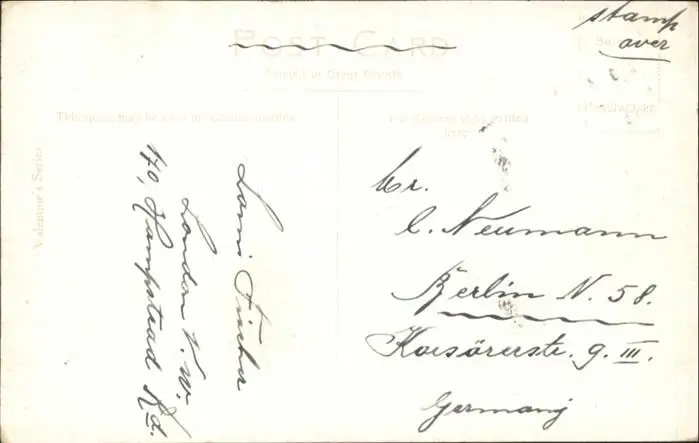 POST CARD
stamp
over
Printed in Great Britain
MANUFACTURE
This space may be used for communication
The Address to be written
here
Valentine's Series
Fischer
London N.W.
170, Hampstead Rd.
Mr.
C. Neumann
Berlin N. 58.
9. III.
Germany